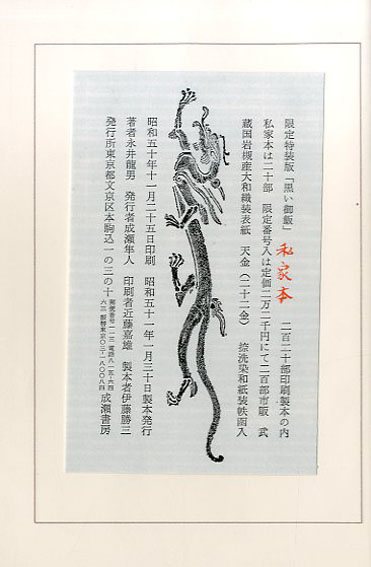 限定特装版「黒い御飯」 私家本 二百二十部印刷製本の内
私家本は二十部 限定番号入は定価二万二千円にて二百部市販 武
蔵国岩槻産大和織装表紙 天金(二十二金) 捺洗染和紙装帙函入
昭和五十年十一月二十五日印刷 昭和五十一年一月三十日製本発行
著者永井龍男 発行者成瀬隼人 印刷者近藤嘉雄 製本者伊藤勝三
発行所東京都文京区本駒込一の三の十 郵便番号一一三 電話八一五・六四
六三 振替東京 成瀬書房